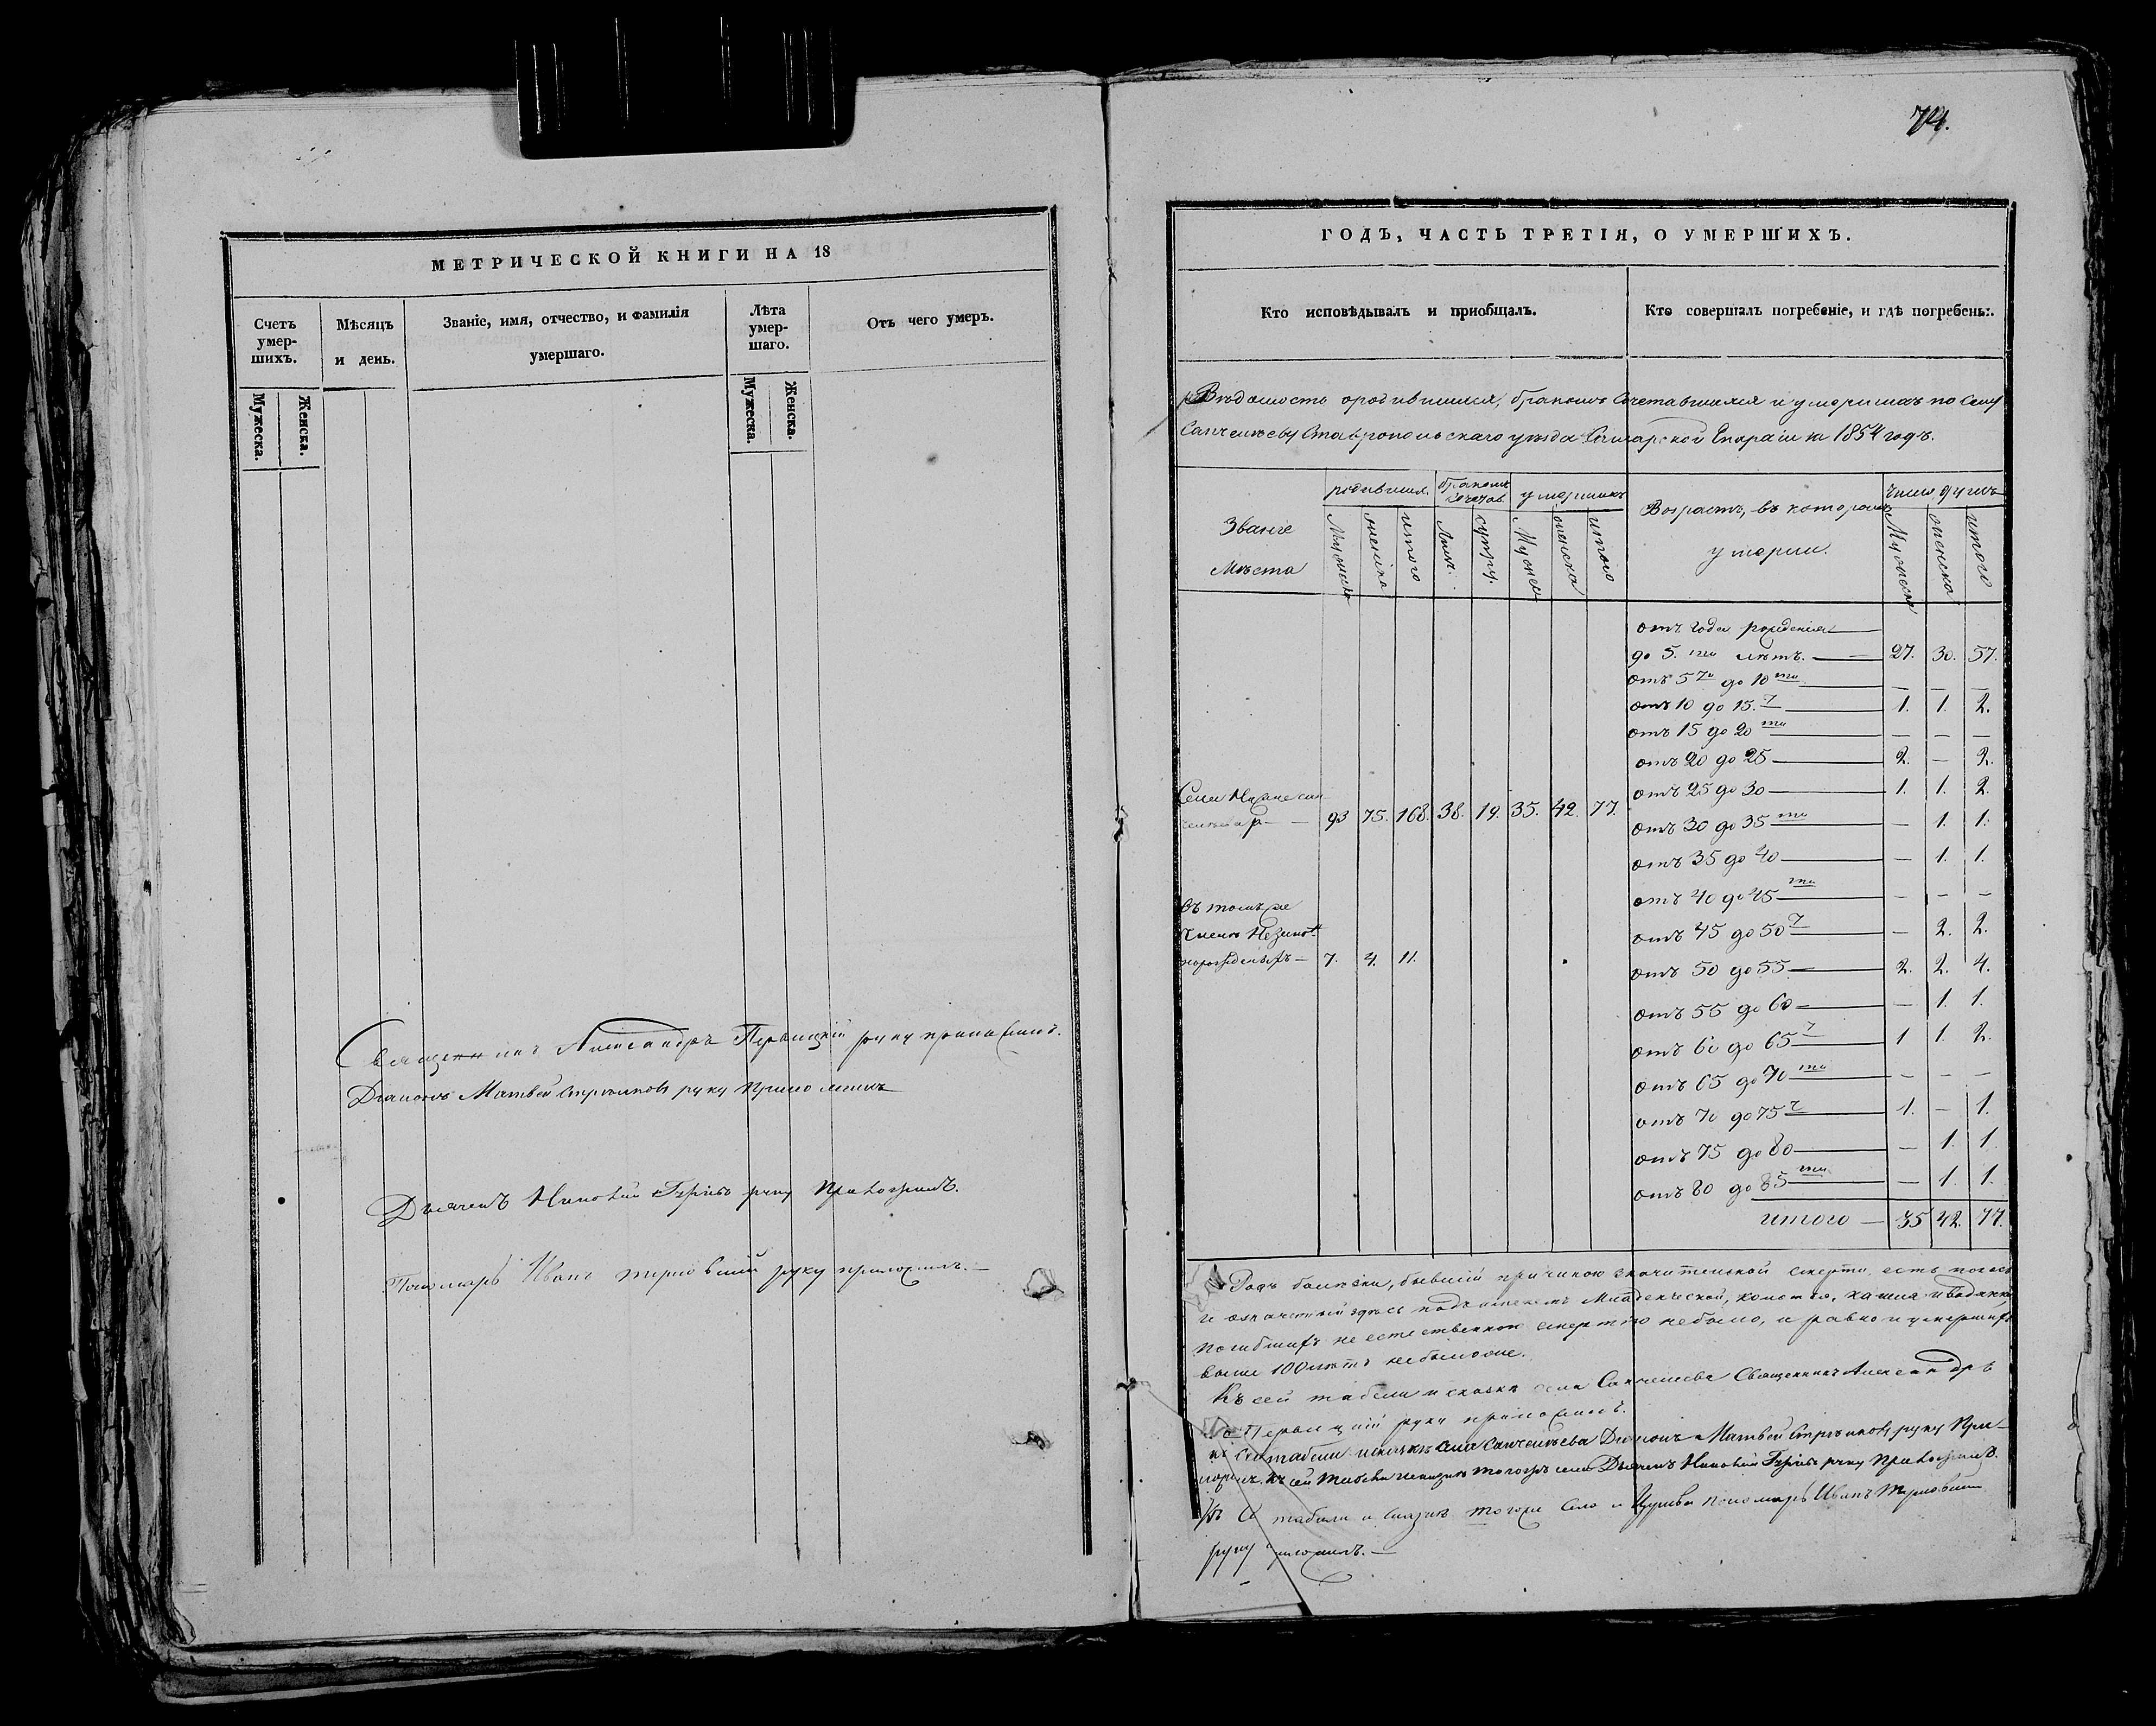 МЕТРИЧЕСКОЙ КНИГИ НА 18
Счетъ умер-шихъ.
Мужеска.
Женска.
Мѣсяцъ и день.
Званіе, имя, отчество, и фамилія умершаго.
Лѣта умер-шаго.
Мужеска.
Женска.
Отъ чего умеръ.
Священникъ Александръ руку приложилъ.
Діаконъ Матвей руку приложилъ
Дьячекъ руку приложилъ.
Пономарь Иванъ руку приложилъ. —
74.
ГОДЪ, ЧАСТЬ ТРЕТІЯ, О УМЕРШИХЪ.
Кто исповѣдывалъ и пріобщалъ.
Кто совершалъ погребеніе, и гдѣ погребены.
Вѣдомость о родившихся, бракомъ сочетавшихся и умершихъ по селу
Санчелѣеву Ставропольскаго уѣзда Самарской Епархіи за 1854 годъ.
Званіе Мѣста
родившихся
Мужеска
женска
итого
бракомъ сочетав.
Лицъ
супру.
умершихъ
Мужеска
женска
итого
Возрастъ, въ которомъ умерли.
число душъ
Мужеска
женска
итого
отъ года рожденія
до 5.ти лѣтъ. — 27. 30. 57.
отъ 5ти до 10ти — — — —
отъ 10 до 15.т — 1. 1. 2.
отъ 15 до 20ти — — — —
отъ 20 до 25 — 2. — 2.
отъ 25 до 30 — 1. 1. 2.
Села
93 75. 168. 38. 19. 35. 42. 77.
отъ 30 до 35ти — — 1. 1.
отъ 35 до 40 — — 1. 1.
отъ 40 до 45ти — — — —
въ томъ же
числѣ незакон
норожденныхъ — 7. 4. 11.
отъ 45 до 50т — — 2. 2.
отъ 50 до 55 — 2. 2. 4.
отъ 55 до 60 — — 1. 1.
отъ 60 до 65т — 1 1. 2.
отъ 65 до 70ти — — — —
отъ 70 до 75т — 1. — 1.
отъ 75 до 80 — — 1. 1.
отъ 80 до 85ти — — 1. 1.
итого — 35 42. 77.
Родъ болѣзни, бывшій причиною значительной смерти, есть
и означенный здѣсь подъ именемъ Младенческой, колотья, кашля и водянки
погибшихъ не естественною смертію небыло, и равно и умершихъ
выше 100 лѣтъ небыло же.
Къ сей табели и сказкѣ села Санчелеева Священникъ Александръ
руку приложилъ.
къ сей табели и сказкѣ села Санчелѣева Діаконъ Матвей руку при-
ложилъ. Къ сей табели и сказкѣ тогожъ села Дьячекъ руку приложилъ.
Къ сей табели и сказкѣ тогоже села и Церкви пономарь Иванъ
руку приложилъ. —